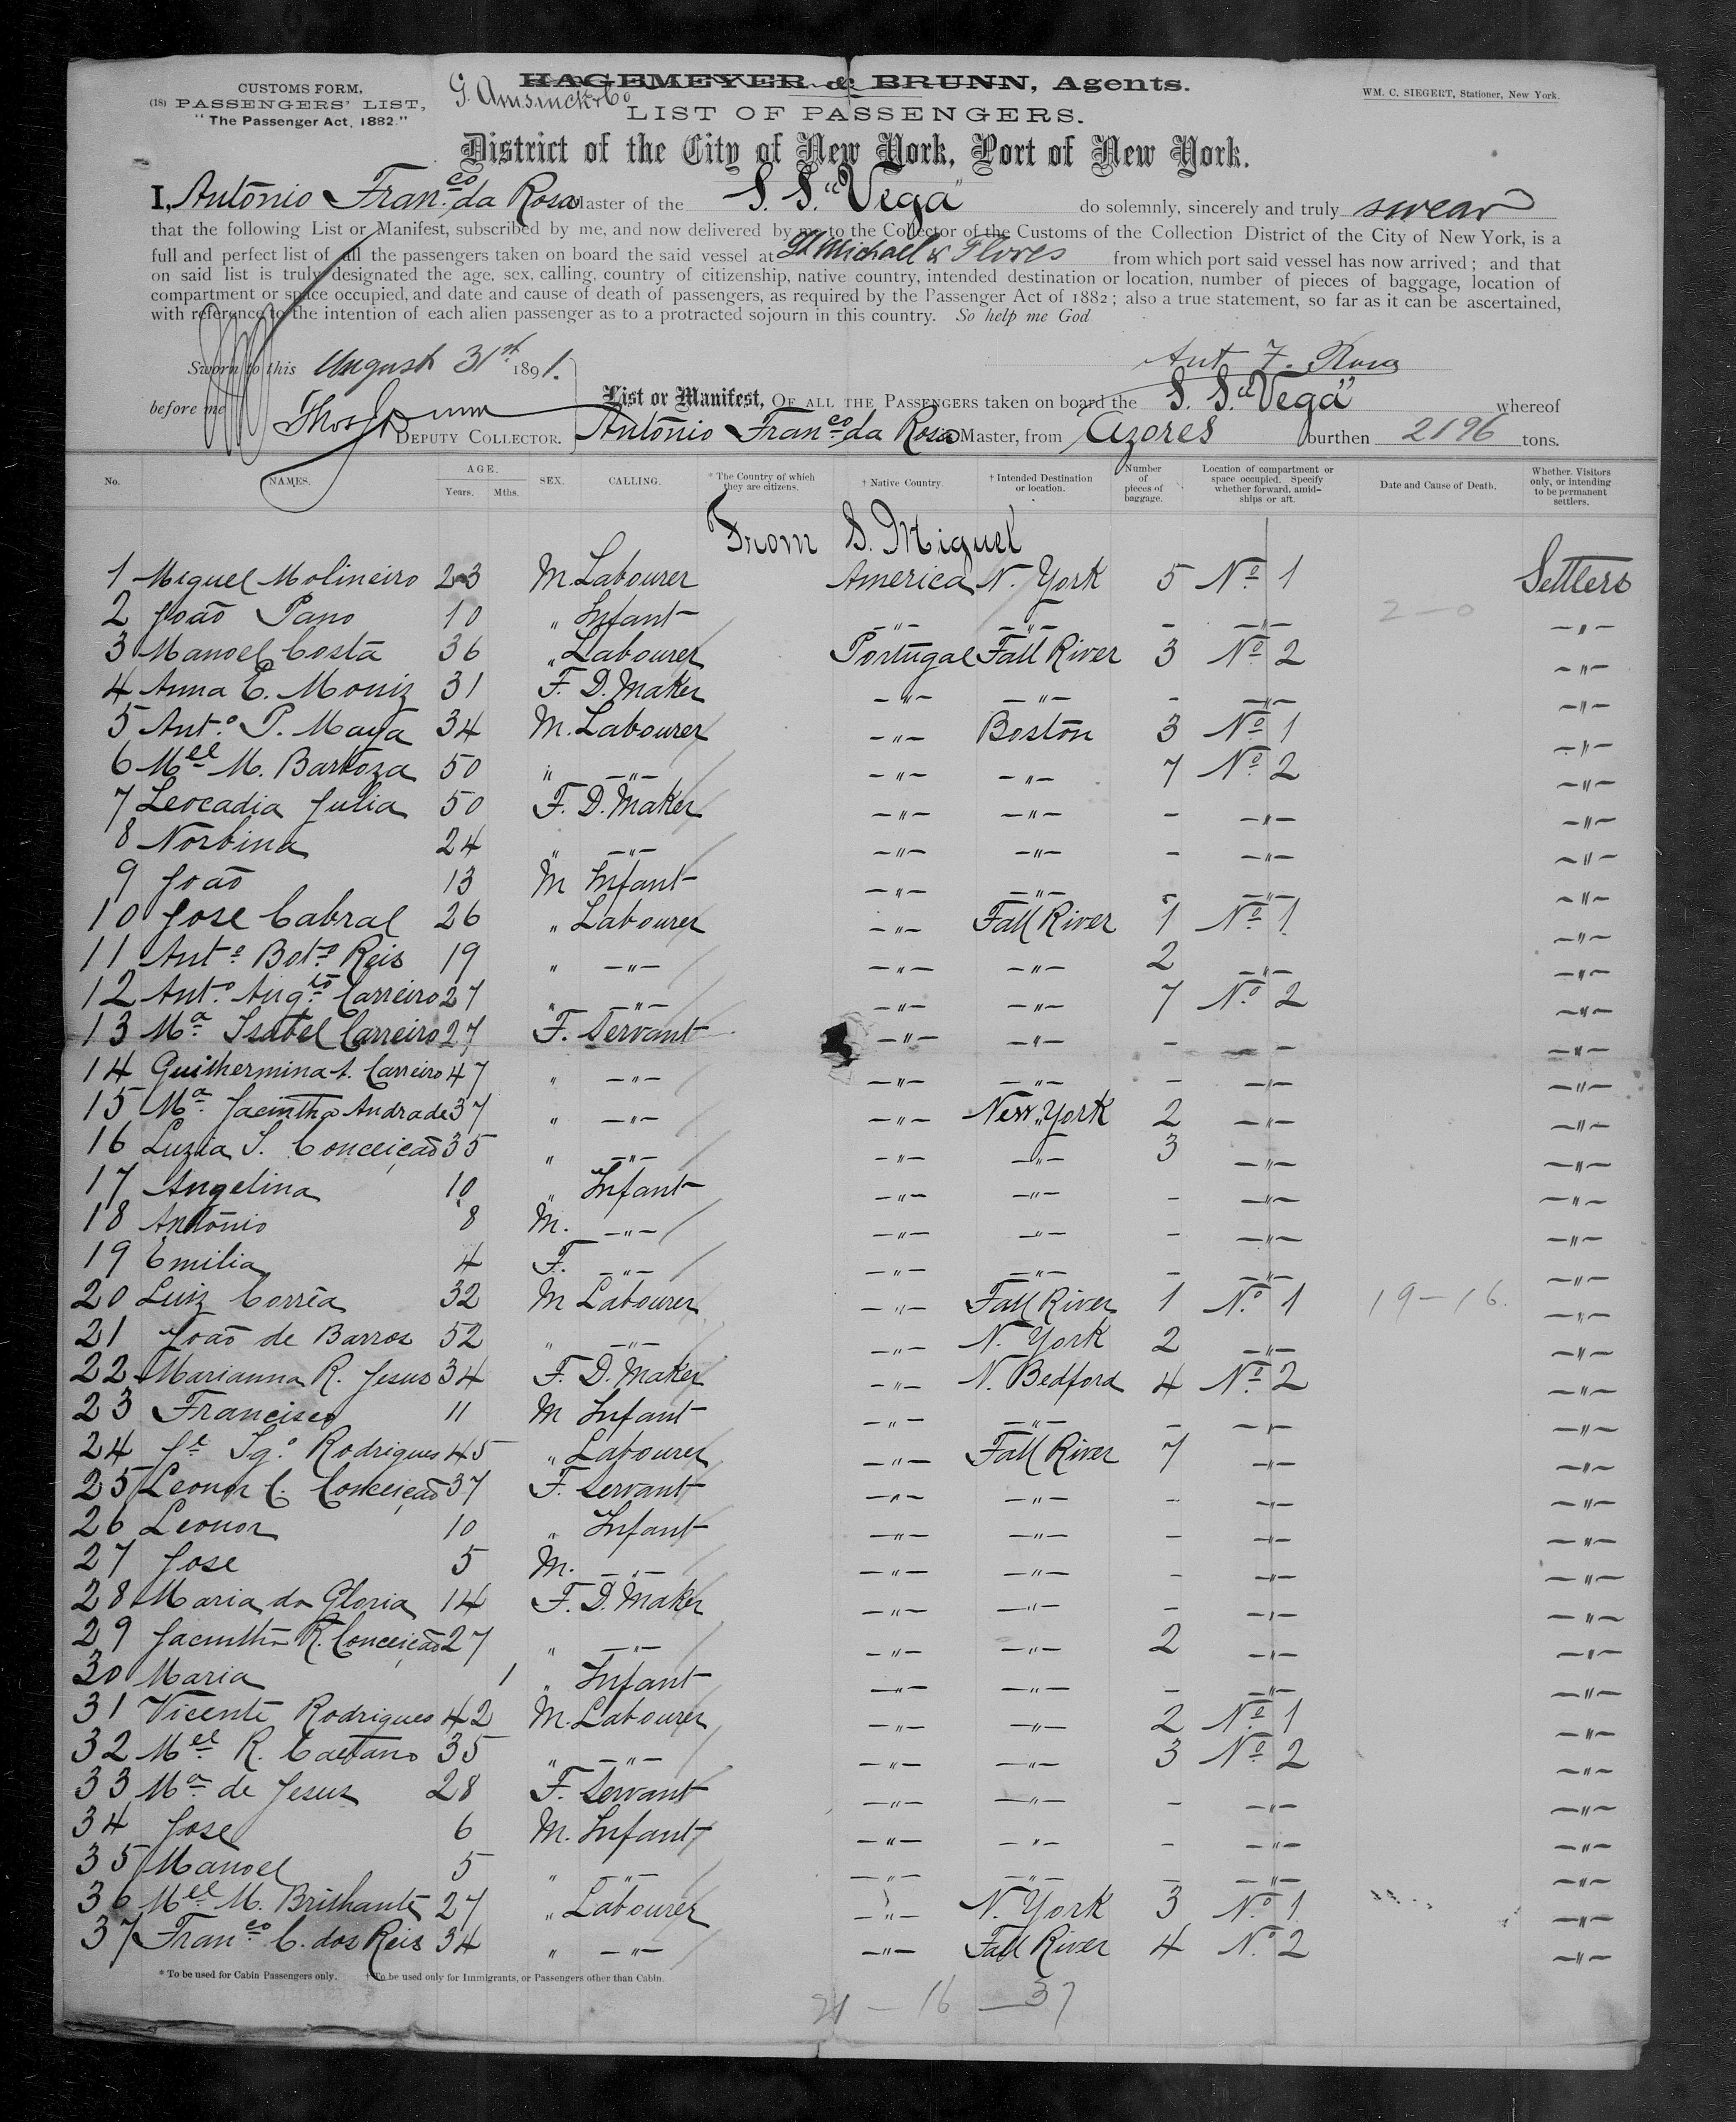 CUSTOMS FORM,
(18) PASSENGERS' LIST,
"The Passenger Act, 1882."
HAGEMEYER & BRUNN, Agents.
G. Amsinck & Co
WM. C. SIEGERT, Stationer, New York.
LIST OF PASSENGERS.
District of the City of New York, Port of New York.
I, António Fran.co da Rosa Master of the S. S. "Vega" do solemnly, sincerely and truly swear
that the following List or Manifest, subscribed by me, and now delivered by me to the Collector of the Customs of the Collection District of the City of New York, is a
full and perfect list of all the passengers taken on board the said vessel at St Michael & Flores from which port said vessel has now arrived; and that
on said list is truly designated the age, sex, calling, country of citizenship, native country, intended destination or location, number of pieces of baggage, location of
compartment or space occupied, and date and cause of death of passengers, as required by the Passenger Act of 1882; also a true statement, so far as it can be ascertained,
with reference to the intention of each alien passenger as to a protracted sojourn in this country. So help me God
Ant F. Rosa
Sworn to this August 31st 1891.
before me
DEPUTY COLLECTOR.
List or Manifest, OF ALL THE PASSENGERS taken on board the S. S. "Vega" whereof
António Fran.co da Rosa Master, from Azores burthen 2196 tons.
No. NAMES. AGE. Years. Mths. SEX. CALLING. * The Country of which they are citizens. † Native Country. † Intended Destination or location. Number of pieces of baggage. Location of compartment or space occupied. Specify whether forward, amidships or aft. Date and Cause of Death. Whether Visitors only, or intending to be permanent settlers.
From S. Miguel
1 Miguel Molineiro 23 M. Labourer America N. York 5 No 1 Settlers
2 João Pano 10 " Infant —"— —"— - —"— 2-0 —"—
3 Manoel Costa 36 " Labourer Portugal Fall River 3 No 2 —"—
4 Anna E. Moniz 31 F. D. Maker —"— —"— - —"— —"—
5 Ant.o P. Maya 34 M. Labourer —"— Boston 3 No 1 —"—
6 Mel M. Barboza 50 " —"— —"— —"— 7 No 2 —"—
7 Leocadia Julia 50 F. D. Maker —"— —"— - —"— —"—
8 Norbina 24 " —"— —"— —"— - —"— —"—
9 João 13 M Infant —"— —"— - —"— —"—
10 Jose Cabral 26 " Labourer —"— Fall River 1 No 1 —"—
11 Anto Boto Reis 19 " —"— —"— —"— 2 —"— —"—
12 Anto Aug.to Carreiro 27 " —"— —"— —"— 7 No 2 —"—
13 Ma Isabel Carreiro 27 F. Servant —"— —"— - - —"—
14 Guilhermina A. Carreiro 47 " —"— —"— —"— - —"— —"—
15 Ma Jacintha Andrade 37 " —"— —"— New York 2 —"— —"—
16 Luzia S. Conceição 35 " —"— —"— —"— 3 —"— —"—
17 Angelina 10 " Infant —"— —"— - —"— —"—
18 António 8 M. —"— —"— —"— - —"— —"—
19 Emilia 4 F. —"— —"— —"— - —"— —"—
20 Luiz Corrêa 32 M Labourer —"— Fall River 1 No 1 19-16. —"—
21 João de Barros 52 " —"— —"— N. York 2 —"— —"—
22 Marianna R. Jesus 34 F. D. Maker —"— N. Bedford 4 No 2 —"—
23 Francisco 11 M Infant —"— —"— - —"— —"—
24 Je Igo Rodrigues 45 " Labourer —"— Fall River 7 —"— —"—
25 Leonor C. Conceição 37 F. Servant —"— —"— - —"— —"—
26 Leonor 10 " Infant —"— —"— - —"— —"—
27 Jose 5 M. —"— —"— —"— - —"— —"—
28 Maria da Gloria 14 F. D. Maker —"— —"— - —"— —"—
29 Jacintha R. Conceição 27 " —"— —"— —"— 2 —"— —"—
30 Maria 1 " Infant —"— —"— - —"— —"—
31 Vicente Rodrigues 42 M. Labourer —"— —"— 2 No 1 —"—
32 Mel R. Caetano 35 " —"— —"— —"— 3 No 2 —"—
33 Ma de Jesus 28 F. Servant —"— —"— - —"— —"—
34 Jose 6 M. Infant —"— —"— - —"— —"—
35 Manoel 5 " —"— —"— —"— - —"— —"—
36 Mel M. Brilhante 27 " Labourer —"— N. York 3 No 1 —"—
37 Fran.co C. dos Reis 34 " —"— —"— Fall River 4 No 2 —"—
* To be used for Cabin Passengers only. † To be used only for Immigrants, or Passengers other than Cabin.
21 — 16 — 37